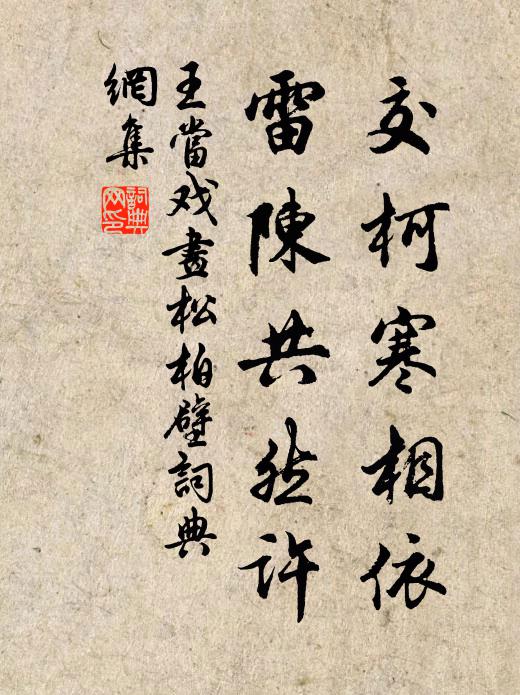 交柯寒相依
雷陳共然許
王當戏畫松柏壁詞典
網集
詞典网印